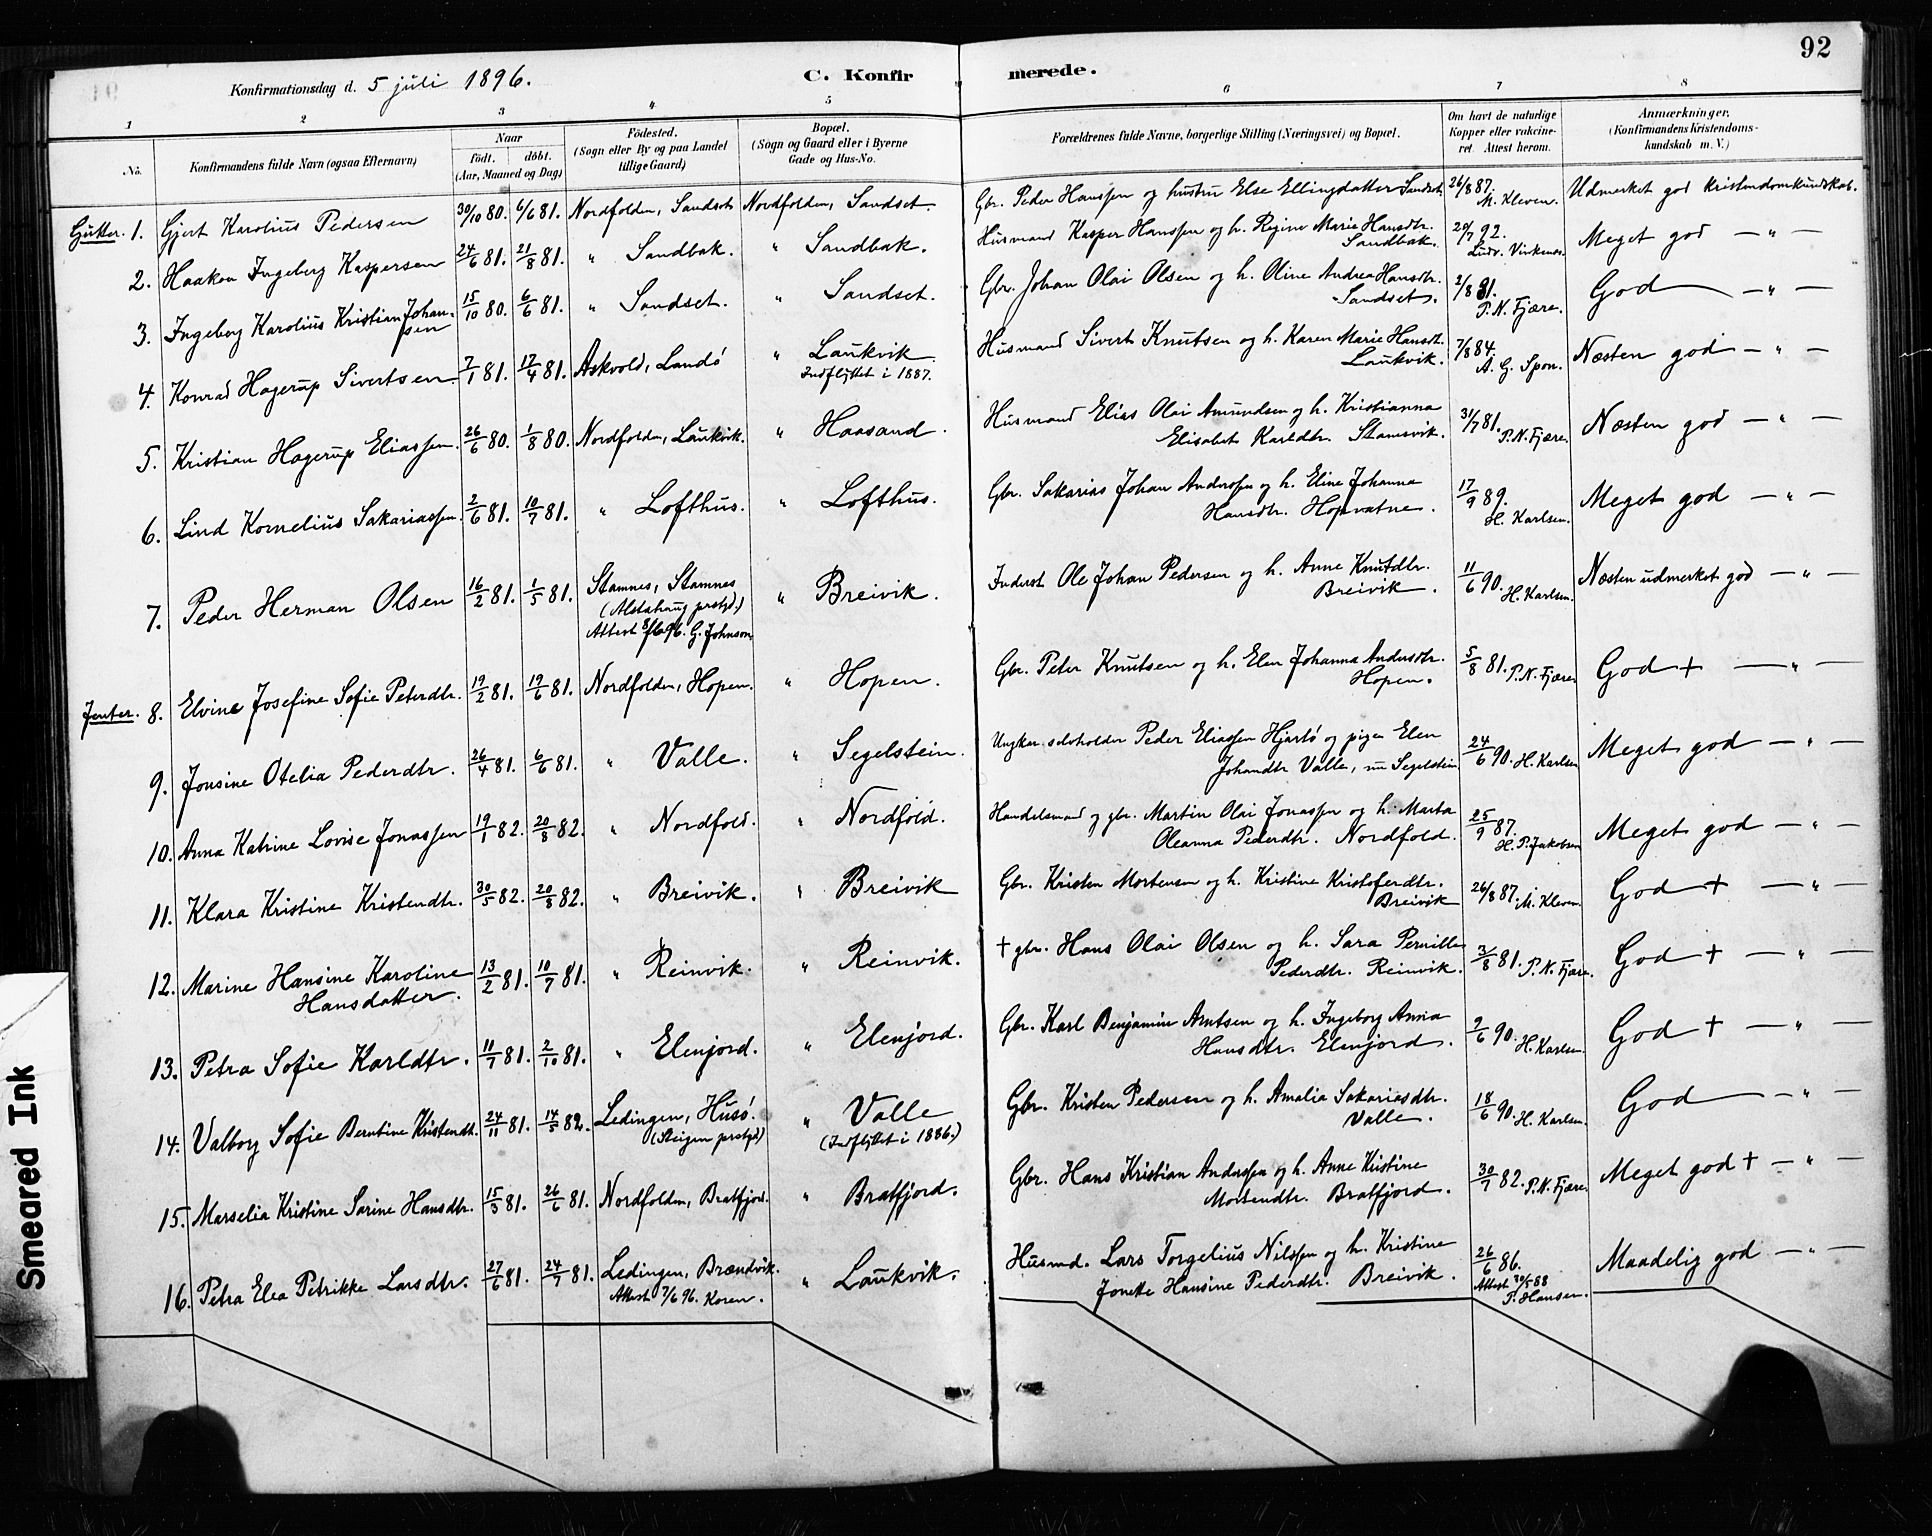 92
Konfirmationsdag d. 5 juli 1896.
C. Konfirmerede.
1 2 3 4 5 6 7 8
No.
Konfirmandens fulde Navn (ogsaa Efternavn)
Naar
født. døbt.
(Aar, Maaned og Dag)
Fødested.
(Sogn eller By og paa Landet
tillige Gaard)
Bopæl.
(Sogn og Gaard eller i Byerne
Gade og Hus-No.
Forældrenes fulde Navne, borgerlige Stilling (Næringsvei) og Bopæl.
Om havt de naturlige
Kopper eller vakcine-
ret. Attest herom.
Anmærkninger.
(Konfirmandens Kristendoms-
kundskab m. V.)
Gutter. 1. Gjert Karolius Pedersen 30/10 80. 6/6 81. Nordfolden, Sandset Nordfolden, Sandset. Gbr. Peder Hanssen og hustru Else Ellingdatter Sandset. 26/8 87. M. Kleven. Udmerket god kristendomskundskab.
2. Haakon Ingeberg Kaspersen 24/6 81. 21/8 81. " Sandbak. " Sandbak. Husmand Kasper Hanssen og h. Regine Marie Hansdtr.
Sandbak. 20/7 92. Ludv. Virkenes. Meget god — " —
3. Ingeborg Karolius Kristian Johan-
sen 15/10 80. 6/6 81. " Sandset. " Sandset. Gbr. Johan Olai Olsen og h. Oline Andrea Hansdtr.
Sandset. 2/8 81. P. N. Fjære. God — " —
4. Konrad Hagerup Sivertsen 7/1 81. 17/4 81. Askvold, Landö " Laukvik.
Indflyttet i 1887. Husmand Sivert Knutsen og h. Karen Marie Hansdt.
Laukvik. 7/8 84. A. G. Spon. Næsten god — " —
5. Kristian Hagerup Eliassen. 26/6 80. 1/8 80. Nordfolden, Laukvik. " Haasand. Husmand Elias Olai Amundsen og h. Kristianna
Elisabet Karldtr. Stamsvik. 31/7 81. P. N. Fjære. Næsten god — " —
6. Lind Kornelius Sakariassen. 2/6 81. 10/7 81. " Lofthus. " Lofthus. Gbr. Sakarias Johan Anderssen og h. Eline Johanna
Hansdtr. Hopvatne. 17/9 89. H. Karlsen. Meget god — " —
7. Peder Herman Olsen 16/2 81. 1/5 81. Stamnes, Stamnes
(Alstahaug prstgd.)
Attest 8/6 96. G. Johnson " Breivik. Inderst Ole Johan Pedersen og h. Anne Knutdtr.
Breivik. 11/6 90. H. Karlsen. Næsten udmerket god — " —
Jenter. 8. Elvine Josefine Sofie Peterdtr. 19/2 81. 19/6 81. Nordfolden, Hopen. " Hopen. Gbr. Peter Knutsen og h. Elen Johanna Andersdtr.
Hopen. 5/8 81. P. N. Fjære God + — " —
9. Jonsine Otelia Pederdtr. 26/4 81. 6/6 81. " Valle. " Segelstein. Ungkar selvholder Peder Eliassen Hjartö og pigen Elen
Johandtr Valle, nu Segelstein 24/6 90. H. Karlsen Meget god — " —
10. Anna Katrine Lovise Jonassen 19/1 82. 20/8 82. " Nordfold. " Nordfold. Handelsmand og gbr. Martin Olai Jonassen og h. Marta
Oleanna Pederdtr. Nordfold. 25/9 87. H. P. Jakobsen Meget god — " —
11. Klara Kristine Kristendtr. 30/5 82. 20/8 82. " Breivik. " Breivik Gbr. Kristen Mortensen og h. Kristine Kristoferdtr.
Breivik 26/8 87. M. Kleven God + — " —
12. Marine Hansine Karoline
Hansdatter. 13/2 81. 10/7 81. " Reinvik. " Reinvik. + gbr. Hans Olai Olsen og h. Sara Pernille
Pederdtr. Reinvik. 3/8 81. P. N. Fjære. God + — " —
13. Petra Sofie Karldtr. 11/7 81. 2/10 81. " Elenjord. " Elenjord. Gbr. Karl Benjamin Arntsen og h. Ingeborg Anna
Hansdtr. Elenjord. 9/6 90. H. Karlsen. God + — " —
14. Valborg Sofie Berntine Kristendt. 24/11 81. 14/5 82. Ledingen, Husö.
(Steigen prstgd) " Valle
(Indflyttet i 1886.) Gbr. Kristen Pedersen og h. Amalia Sakariasdtr.
Valle. 18/6 90. H. Karlsen. God — " —
15. Marselia Kristine Sarine Hansdtr. 15/3 81. 26/6 81. Nordfolden, Bratfjord. " Bratfjord. Gbr. Hans Kristian Anderssen og h. Anne Kristine
Mortendtr. Bratfjord. 30/7 82. P. N. Fjære Meget god + — " —
16. Petra Elea Petrikke Larsdtr. 27/6 81. 24/7 81. Ledingen, Brændvik.
Attest 7/6 96. Koren. " Laukvik. Husmd. Lars Torgelius Nilssen og h. Kristine
Jonette Hansine Pederdtr. Breivik. 26/6 86.
Attest 30/5 88
P. Hansen. Maadelig god — " —
Smeared Ink